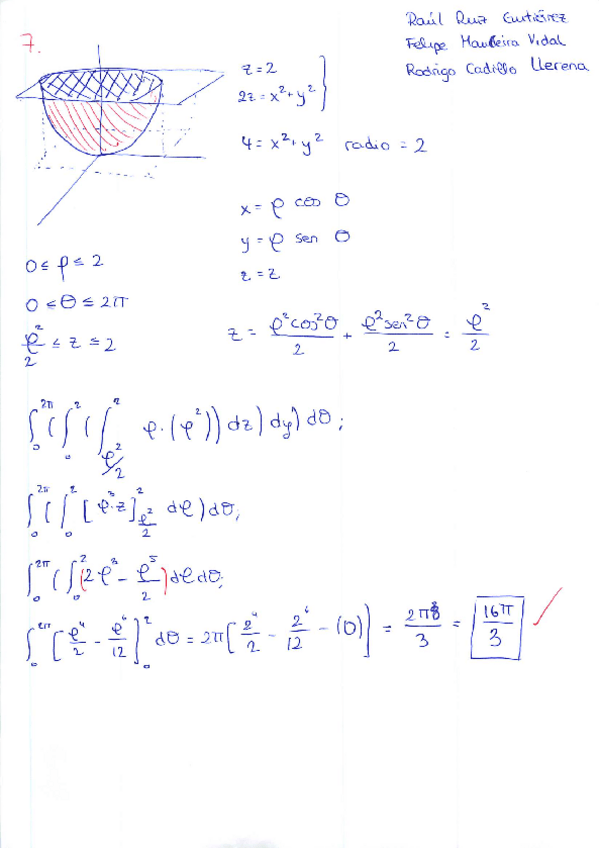 Raúl Ruz Gutiérrez
Felipe Vidal
Rodrigo Cadillo Llerena
7.
z = 2
2z = x² + y²
4 = x² + y² radio = 2
x = ρ cos θ
y = ρ sen θ
z = z
0 ≤ ρ ≤ 2
0 ≤ θ ≤ 2π
ρ²/2 ≤ z ≤ 2
z = ρ²cos²θ/2 + ρ²sen²θ/2 = ρ²/2
∫₀^2π (∫₀^2 (∫_ρ²/2^2 ρ·(ρ²)) dz) dy) dθ;
∫₀^2π (∫₀^2 [ρ³·z]_ρ²/2^2 dρ) dθ;
∫₀^2π (∫₀^2 (2ρ³ - ρ⁵/2) dρ dθ;
∫₀^2π [ρ⁴/2 - ρ⁶/12]₀^2 dθ = 2π [2⁴/2 - 2⁶/12 - (0)] = 2π8/3 = 16π/3